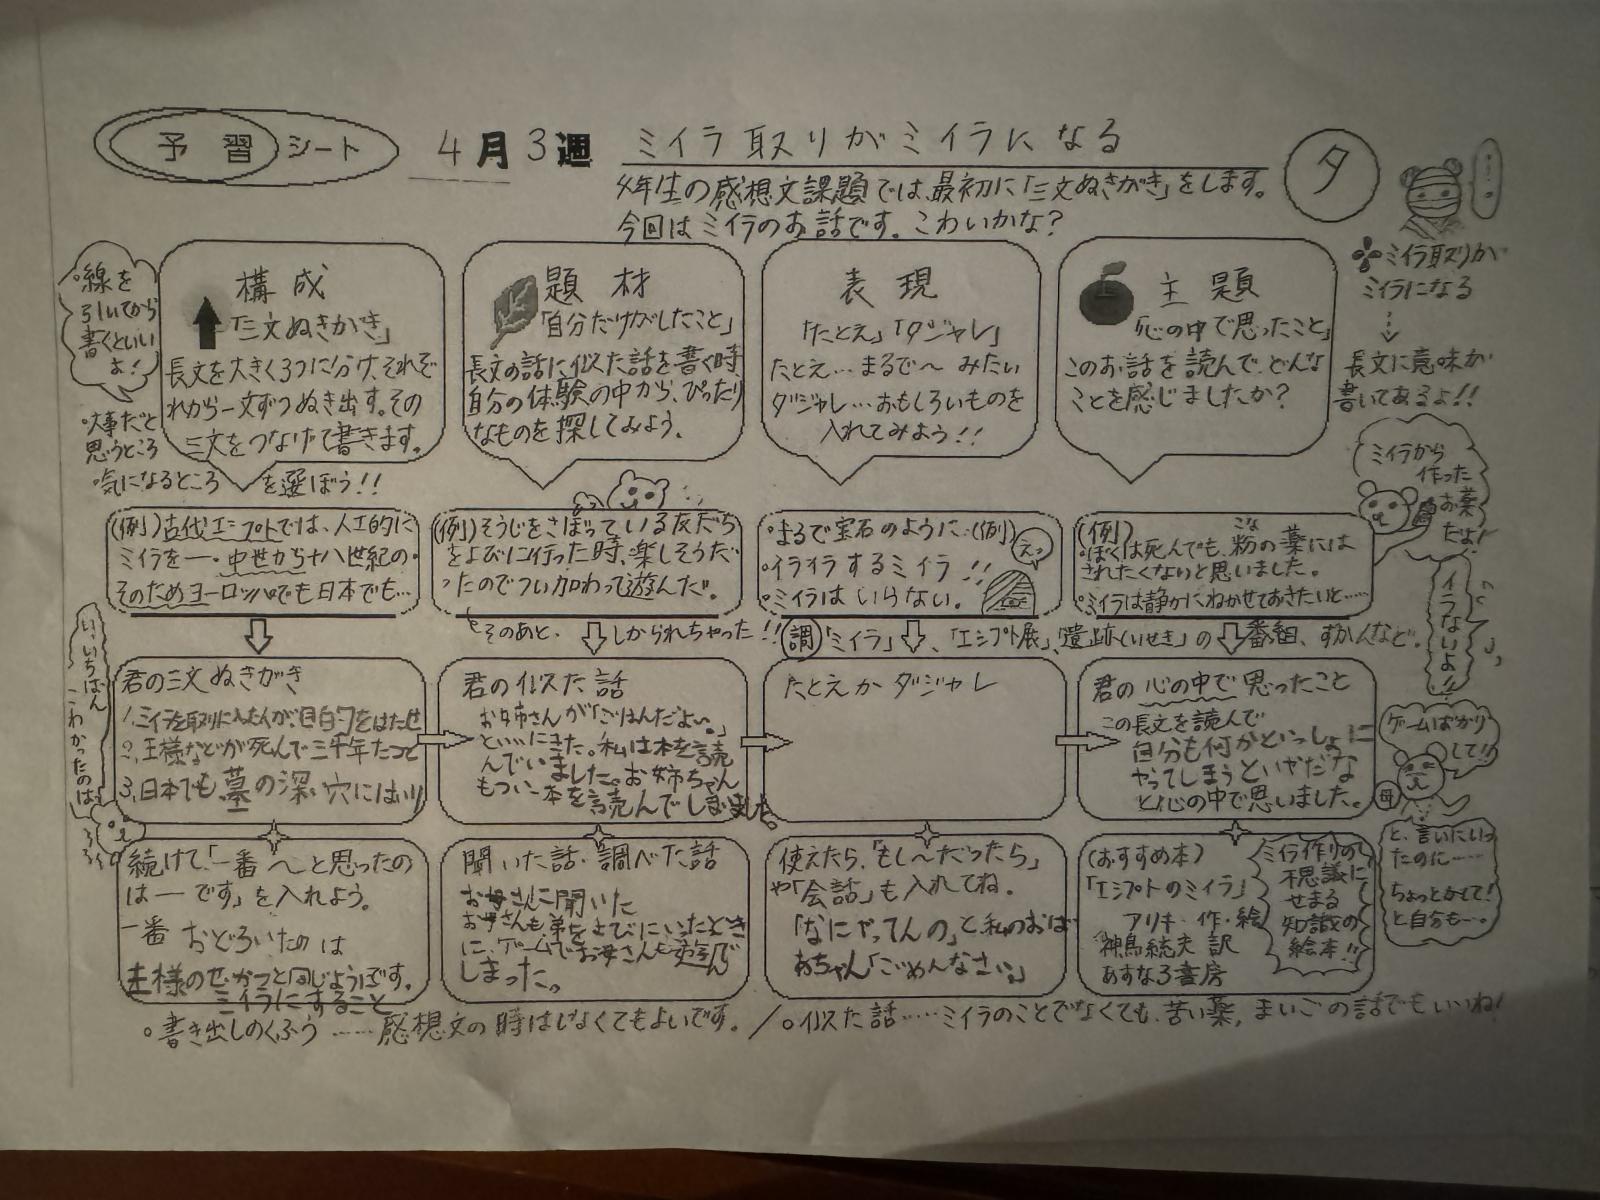 予習シート
4月3週
ミイラ取りがミイラになる
夕
4年生の感想文課題では、最初に「三文ぬきがき」をします。
今回はミイラのお話です。こわいかな？
・線を
引いてから
書くといい
よ！
・大事だと
思うところ
・気になるところ を選ぼう！！
構成
「三文ぬきがき」
長文を大きく3つに分け、それぞ
れから一文ずつぬき出す。その
三文をつなげて書きます。
題材
「自分だけがしたこと」
長文の話に似た話を書く時、
自分の体験の中から、ぴったり
なものを探してみよう。
表現
「たとえ」「ダジャレ」
たとえ…まるで〜みたい
ダジャレ…おもしろいものを
入れてみよう！！
主題
「心の中で思ったこと」
このお話を読んで、どんな
ことを感じましたか？
ミイラ取りが
ミイラになる
長文に意味が
書いてあるよ！！
ミイラから
作った
お薬
だよ！
(例)古代エジプトでは、人工的に
ミイラを―・中世から十八世紀の・
そのためヨーロッパでも日本でも…
(例)そうじをさぼっている友だち
をよびに行った時、楽しそうだ
ったのでつい加わって遊んだ。
そのあと、しかられちゃった！！
・まるで宝石のように…(例)
・イライラするミイラ！！
・ミイラはいらない。
えっ
(例)
・ぼくは死んでも、粉の薬には
こな
されたくないと思いました。
・ミイラは静かにねかせておきたいと……
調「ミイラ」、「エジプト展」、「遺跡(いせき)」の番組、ずかんなど。
イラないよ！！
い、いちばん
こわかったのは
君の三文ぬきがき
1、ミイラを取りに入った人が、目的をはたせ
2、王様などが死んで三千年たつと
3、日本でも墓の深い穴にはいり
君の似た話
お姉さんが「ごはんだよい。」
といいにきた。私は本を読
んでいました。お姉ちゃん
もつい本を読んでしまいました。
たとえかダジャレ
君の心の中で思ったこと
この長文を読んで
自分も何かといっしょに
やってしまうといやだな
と心の中で思いました。
ゲームばかり
して！！
母
と、言いたいっ
たのに……
ちょっとかして！
と自分も…。
続けて「一番〜と思ったの
は―です」を入れよう。
一番 おどろいたのは
王様のせいかつと同じようです。
ミイラにすること
聞いた話・調べた話
お母さんに聞いた
お母さんも弟をよびにいったとき
に、ゲームでお母さんも遊んで
しまった。
使えたら、「もし〜だったら」
や「会話」も入れてね。
「なにやってんの」と私のおば
あちゃん「ごめんなさい。」
(おすすめ本)
「エジプトのミイラ」
アリキ・作・絵
神鳥統夫 訳
あすなろ書房
ミイラ作りの
不思議に
せまる
知識の
絵本！！
・書き出しのくふう……感想文の時はしなくてもよいです。／・似た話……ミイラのことでなくても、苦い薬、まいごの話でもいいね！